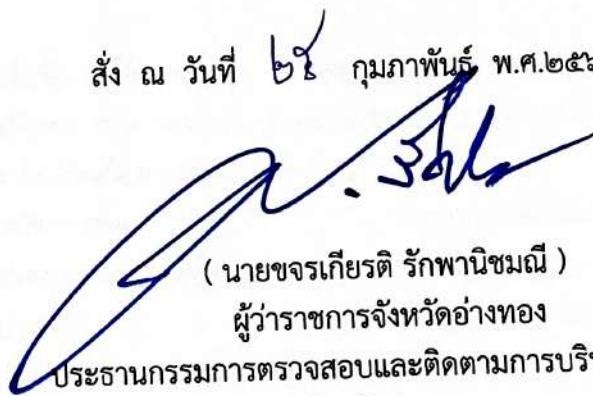 สั่ง ณ วันที่ ๒๕ กุมภาพันธ์ พ.ศ.๒๕๖
( นายขจรเกียรติ รักพานิชมณี )
ผู้ว่าราชการจังหวัดอ่างทอง
ประธานกรรมการตรวจสอบและติดตามการบริห